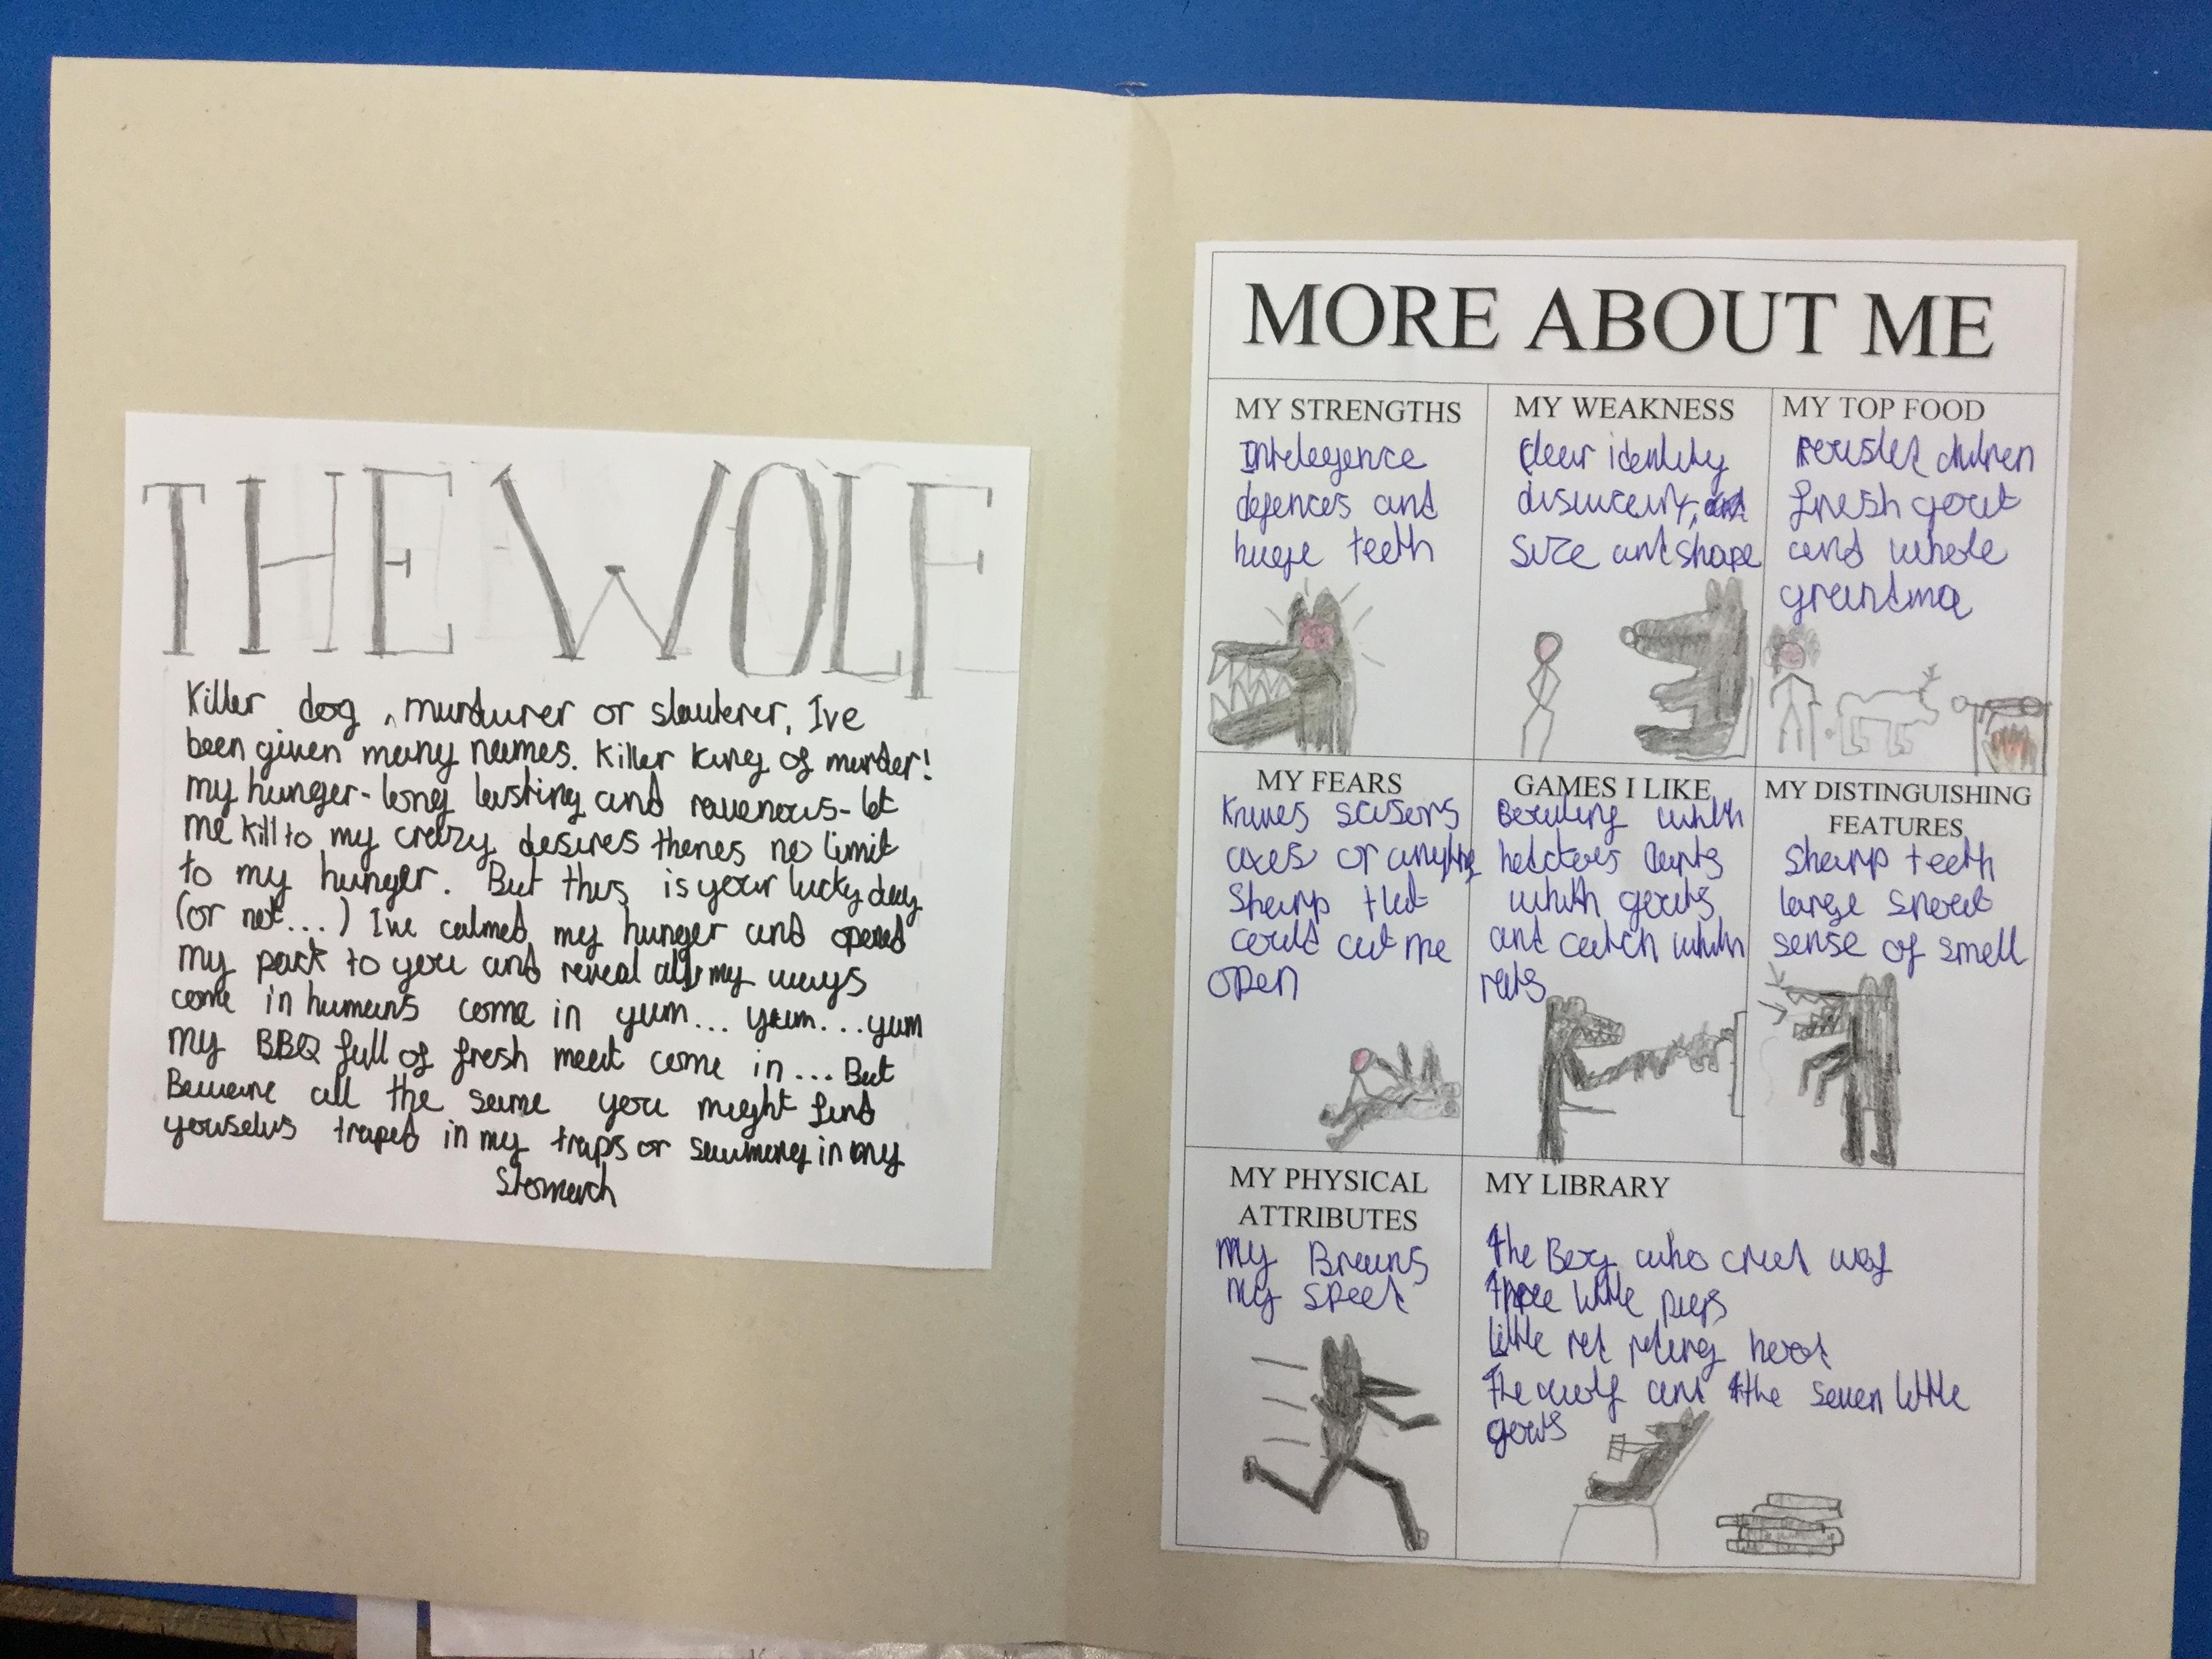 THE WOLF
Killer dog, murdurer or slauterer, Ive
been given many names. Killer King of murder!
my hunger-long lasting and ravenous-let
me kill to my crazy desires theres no limit
to my hunger. But this is your lucky day
(or not...) Ive calmed my hunger and opened
my park to you and reveal all my ways
come in humans come in yum... yum...yum
my BBQ full of fresh meat come in... But
Beware all the same you might find
youselvs traped in my traps or swiming in my
Stomach
MORE ABOUT ME
MY STRENGTHS
Intelegence
defences and
huge teeth
MY WEAKNESS
Clear identity
size and shape
MY TOP FOOD
children
fresh goat
and whole
grandma
MY FEARS
Knives scisors
axes or anything
Sharp that
could cut me
open
GAMES I LIKE
Bowling whith
darts
whith goats
and catch whith
rats
MY DISTINGUISHING
FEATURES
Sharp teeth
large snout
sense of smell
MY PHYSICAL
ATTRIBUTES
My Brains
My speed
MY LIBRARY
the Boy who cried wolf
three little pigs
Little red riding hood
The wolf and the seven little
goats